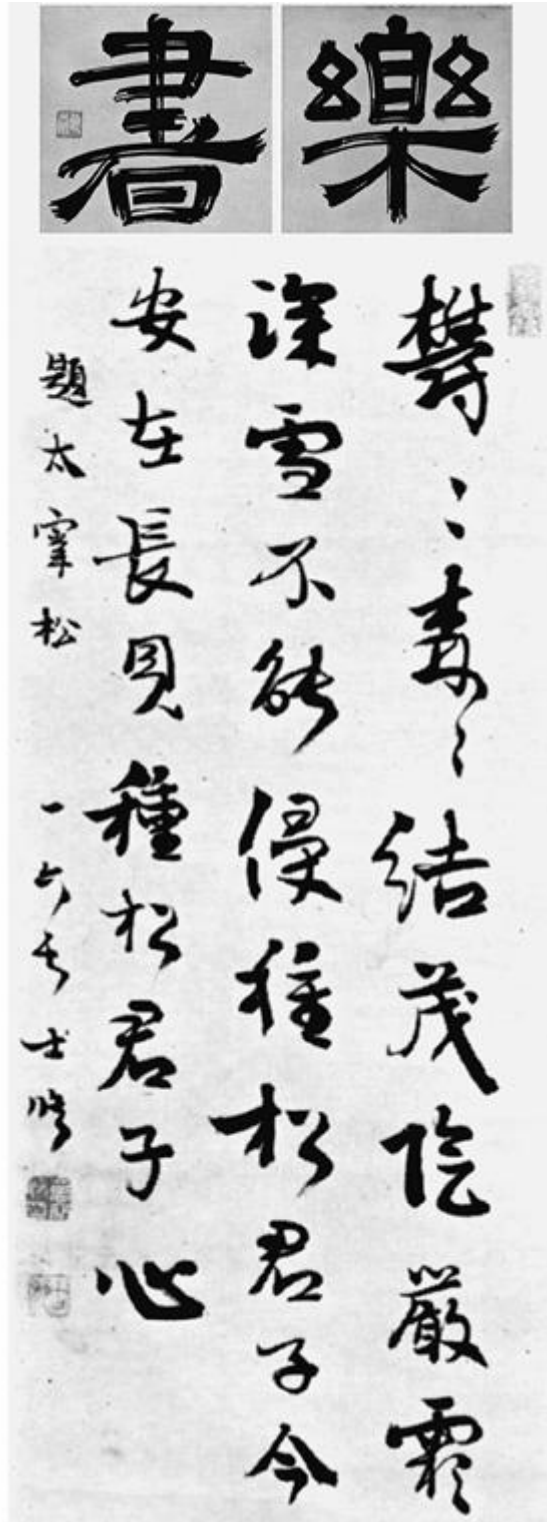 樂書
欝〻青〻結茂陰嚴霜
深雪不能侵種松君子今
安在長見種松君子心
題太宰松 一六居士修